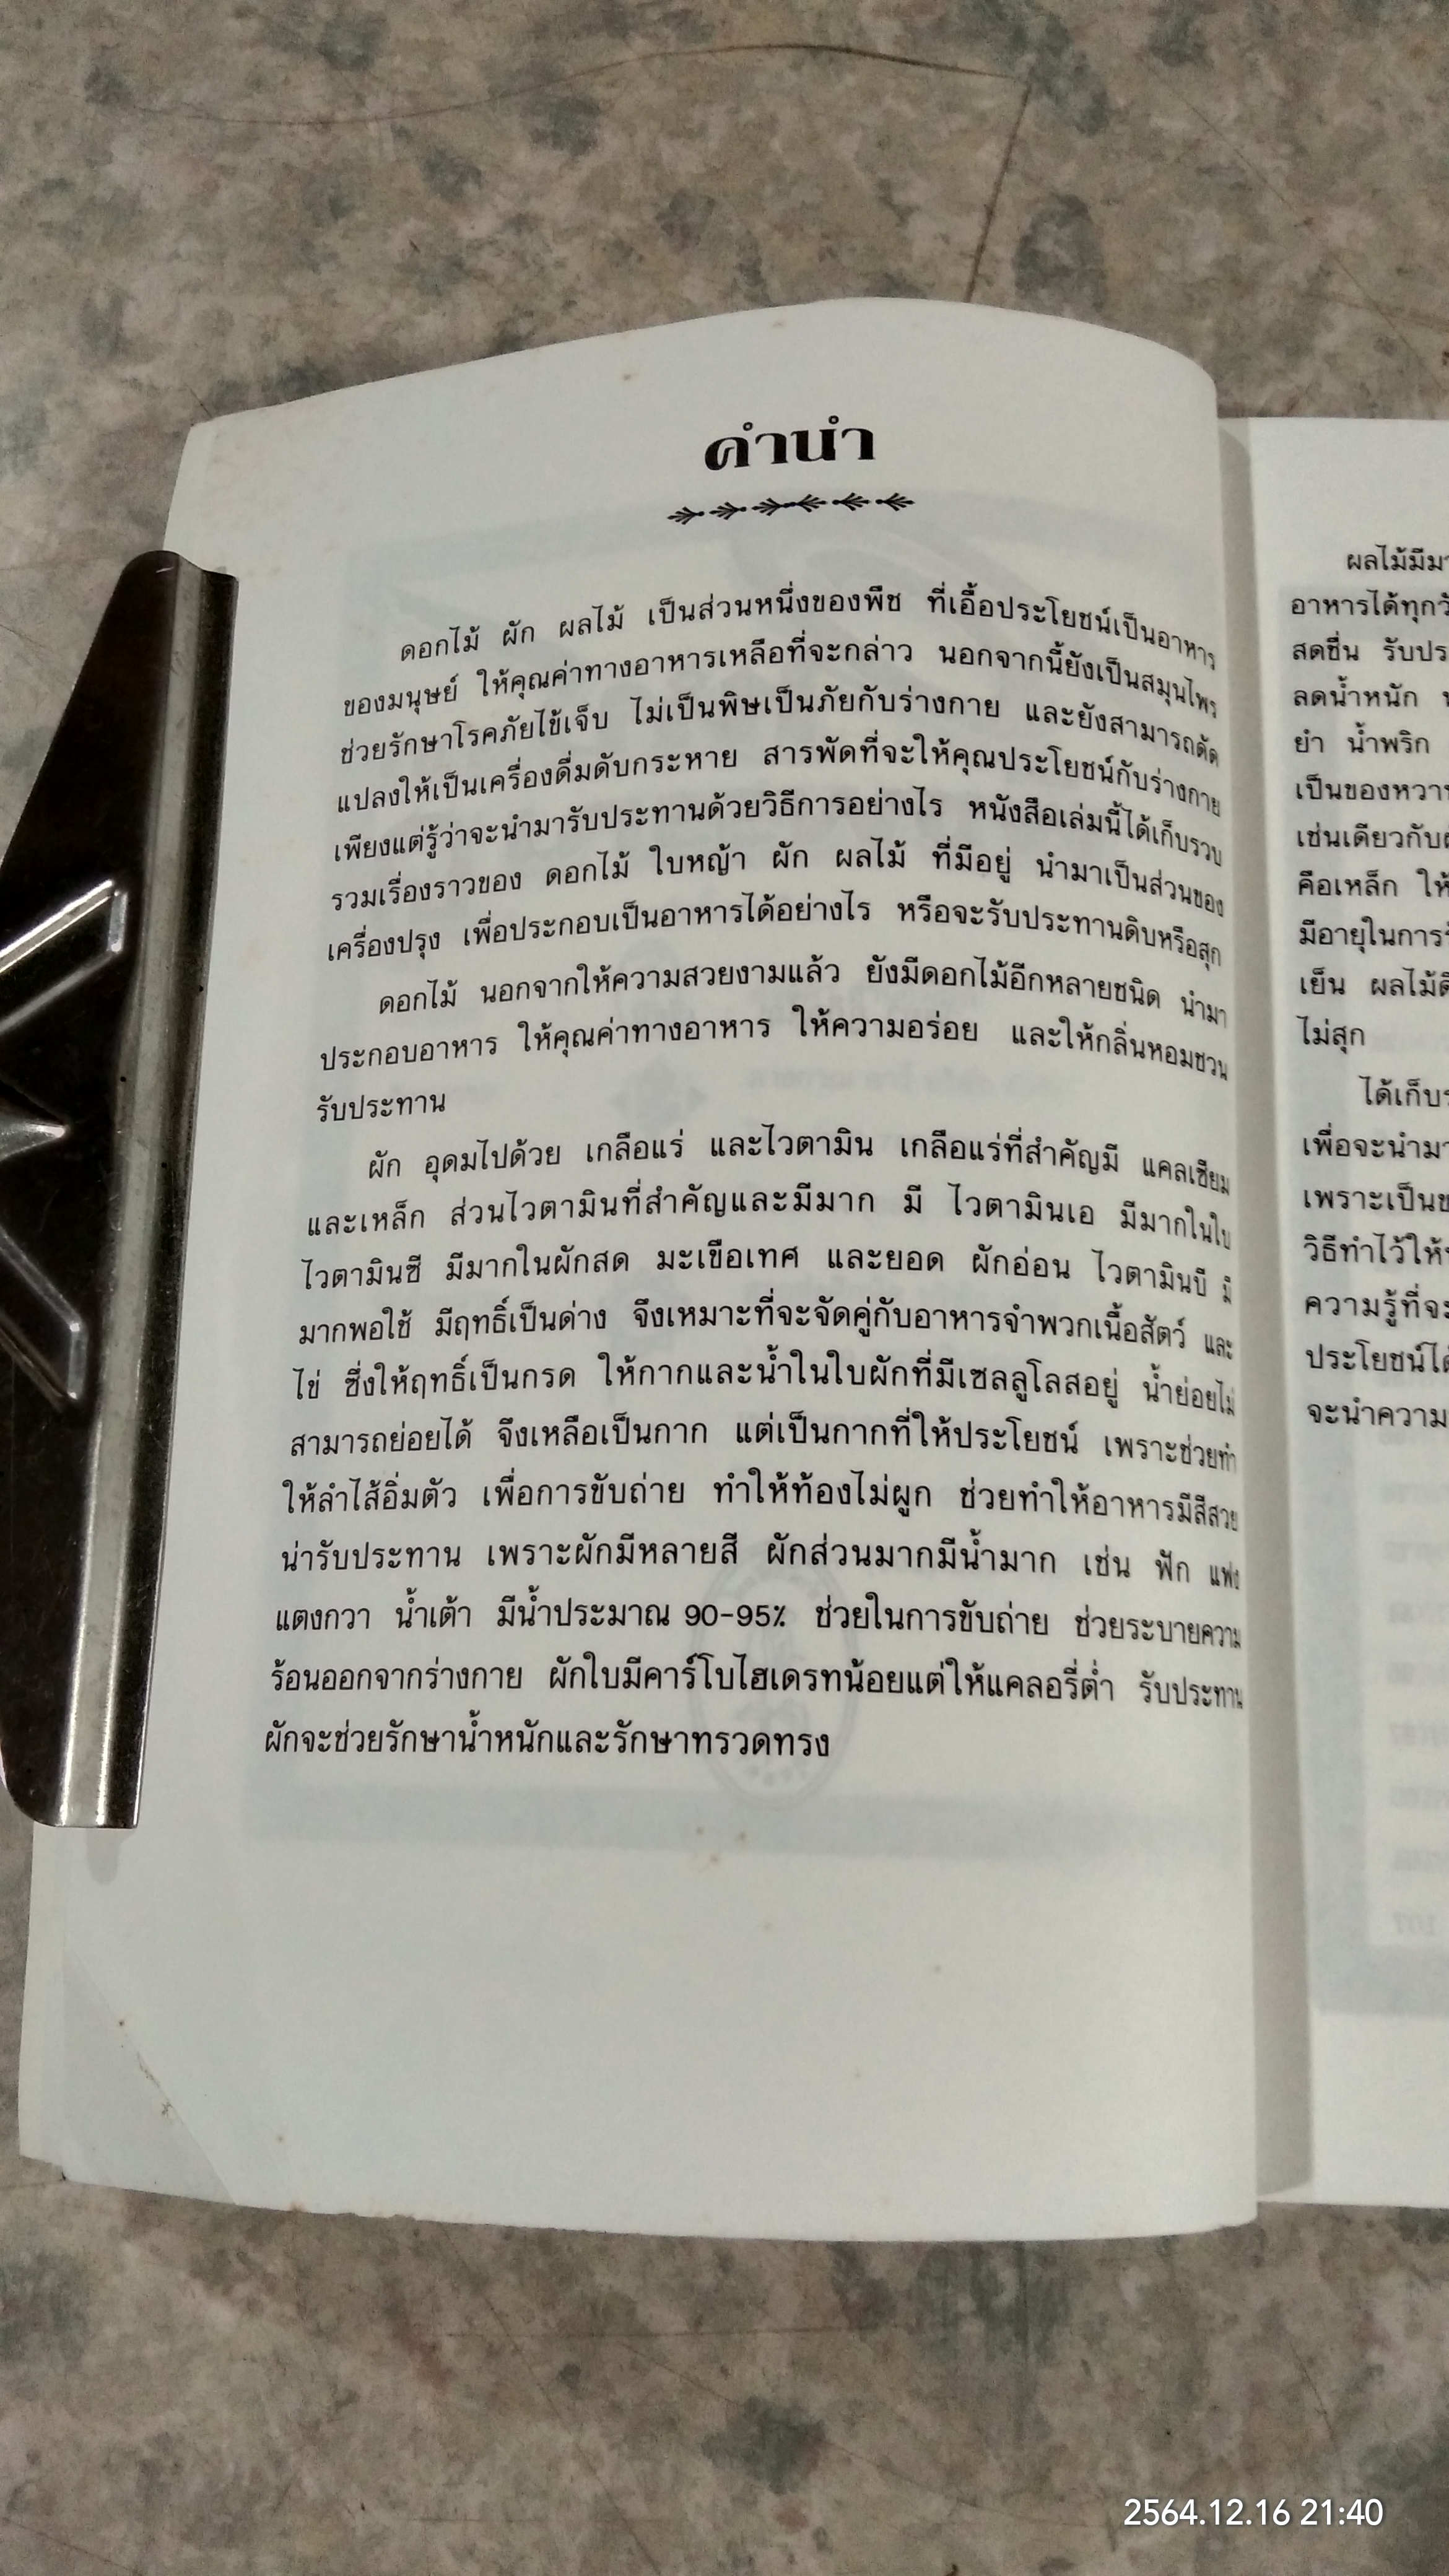 คำนำ
ดอกไม้ ผัก ผลไม้ เป็นส่วนหนึ่งของพืช ที่เอื้อประโยชน์เป็นอาหาร
ของมนุษย์ ให้คุณค่าทางอาหารเหลือที่จะกล่าว นอกจากนี้ยังเป็นสมุนไพร
ช่วยรักษาโรคภัยไข้เจ็บ ไม่เป็นพิษเป็นภัยกับร่างกาย และยังสามารถดัด
แปลงให้เป็นเครื่องดื่มดับกระหาย สารพัดที่จะให้คุณประโยชน์กับร่างกาย
เพียงแต่รู้ว่าจะนำมารับประทานด้วยวิธีการอย่างไร หนังสือเล่มนี้ได้เก็บรวบ
รวมเรื่องราวของ ดอกไม้ ใบหญ้า ผัก ผลไม้ ที่มีอยู่ นำมาเป็นส่วนของ
เครื่องปรุง เพื่อประกอบเป็นอาหารได้อย่างไร หรือจะรับประทานดิบหรือสุก
ดอกไม้ นอกจากให้ความสวยงามแล้ว ยังมีดอกไม้อีกหลายชนิด นำมา
ประกอบอาหาร ให้คุณค่าทางอาหาร ให้ความอร่อย และให้กลิ่นหอมชวน
รับประทาน
ผัก อุดมไปด้วย เกลือแร่ และไวตามิน เกลือแร่ที่สำคัญมี แคลเซียม
และเหล็ก ส่วนไวตามินที่สำคัญและมีมาก มี ไวตามินเอ มีมากในใบ
ไวตามินซี มีมากในผักสด มะเขือเทศ และยอด ผักอ่อน ไวตามินบี มี
มากพอใช้ มีฤทธิ์เป็นด่าง จึงเหมาะที่จะจัดคู่กับอาหารจำพวกเนื้อสัตว์ และ
ไข่ ซึ่งให้ฤทธิ์เป็นกรด ให้กากและน้ำในใบผักที่มีเซลลูโลสอยู่ น้ำย่อยไม่
สามารถย่อยได้ จึงเหลือเป็นกาก แต่เป็นกากที่ให้ประโยชน์ เพราะช่วยทำ
ให้ลำไส้อิ่มตัว เพื่อการขับถ่าย ทำให้ท้องไม่ผูก ช่วยทำให้อาหารมีสีสวย
น่ารับประทาน เพราะผักมีหลายสี ผักส่วนมากมีน้ำมาก เช่น ฟัก แฟง
แตงกวา น้ำเต้า มีน้ำประมาณ 90-95% ช่วยในการขับถ่าย ช่วยระบายความ
ร้อนออกจากร่างกาย ผักใบมีคาร์โบไฮเดรทน้อยแต่ให้แคลอรี่ต่ำ รับประทาน
ผักจะช่วยรักษาน้ำหนักและรักษาทรวดทรง
ผลไม้มี
อาหารได้ทุก
สดชื่น รับ
ลดน้ำหนัก
ยำ น้ำพริก
เป็นของหวาน
เช่นเดียวกับ
คือเหล็ก ให้
มีอายุในการ
เย็น ผลไม้
ไม่สุก
ได้เก็บ
เพื่อจะนำมา
เพราะเป็น
วิธีทำไว้ให้
ความรู้ที่จะ
ประโยชน์ได้
จะนำความ
2564.12.16 21:40